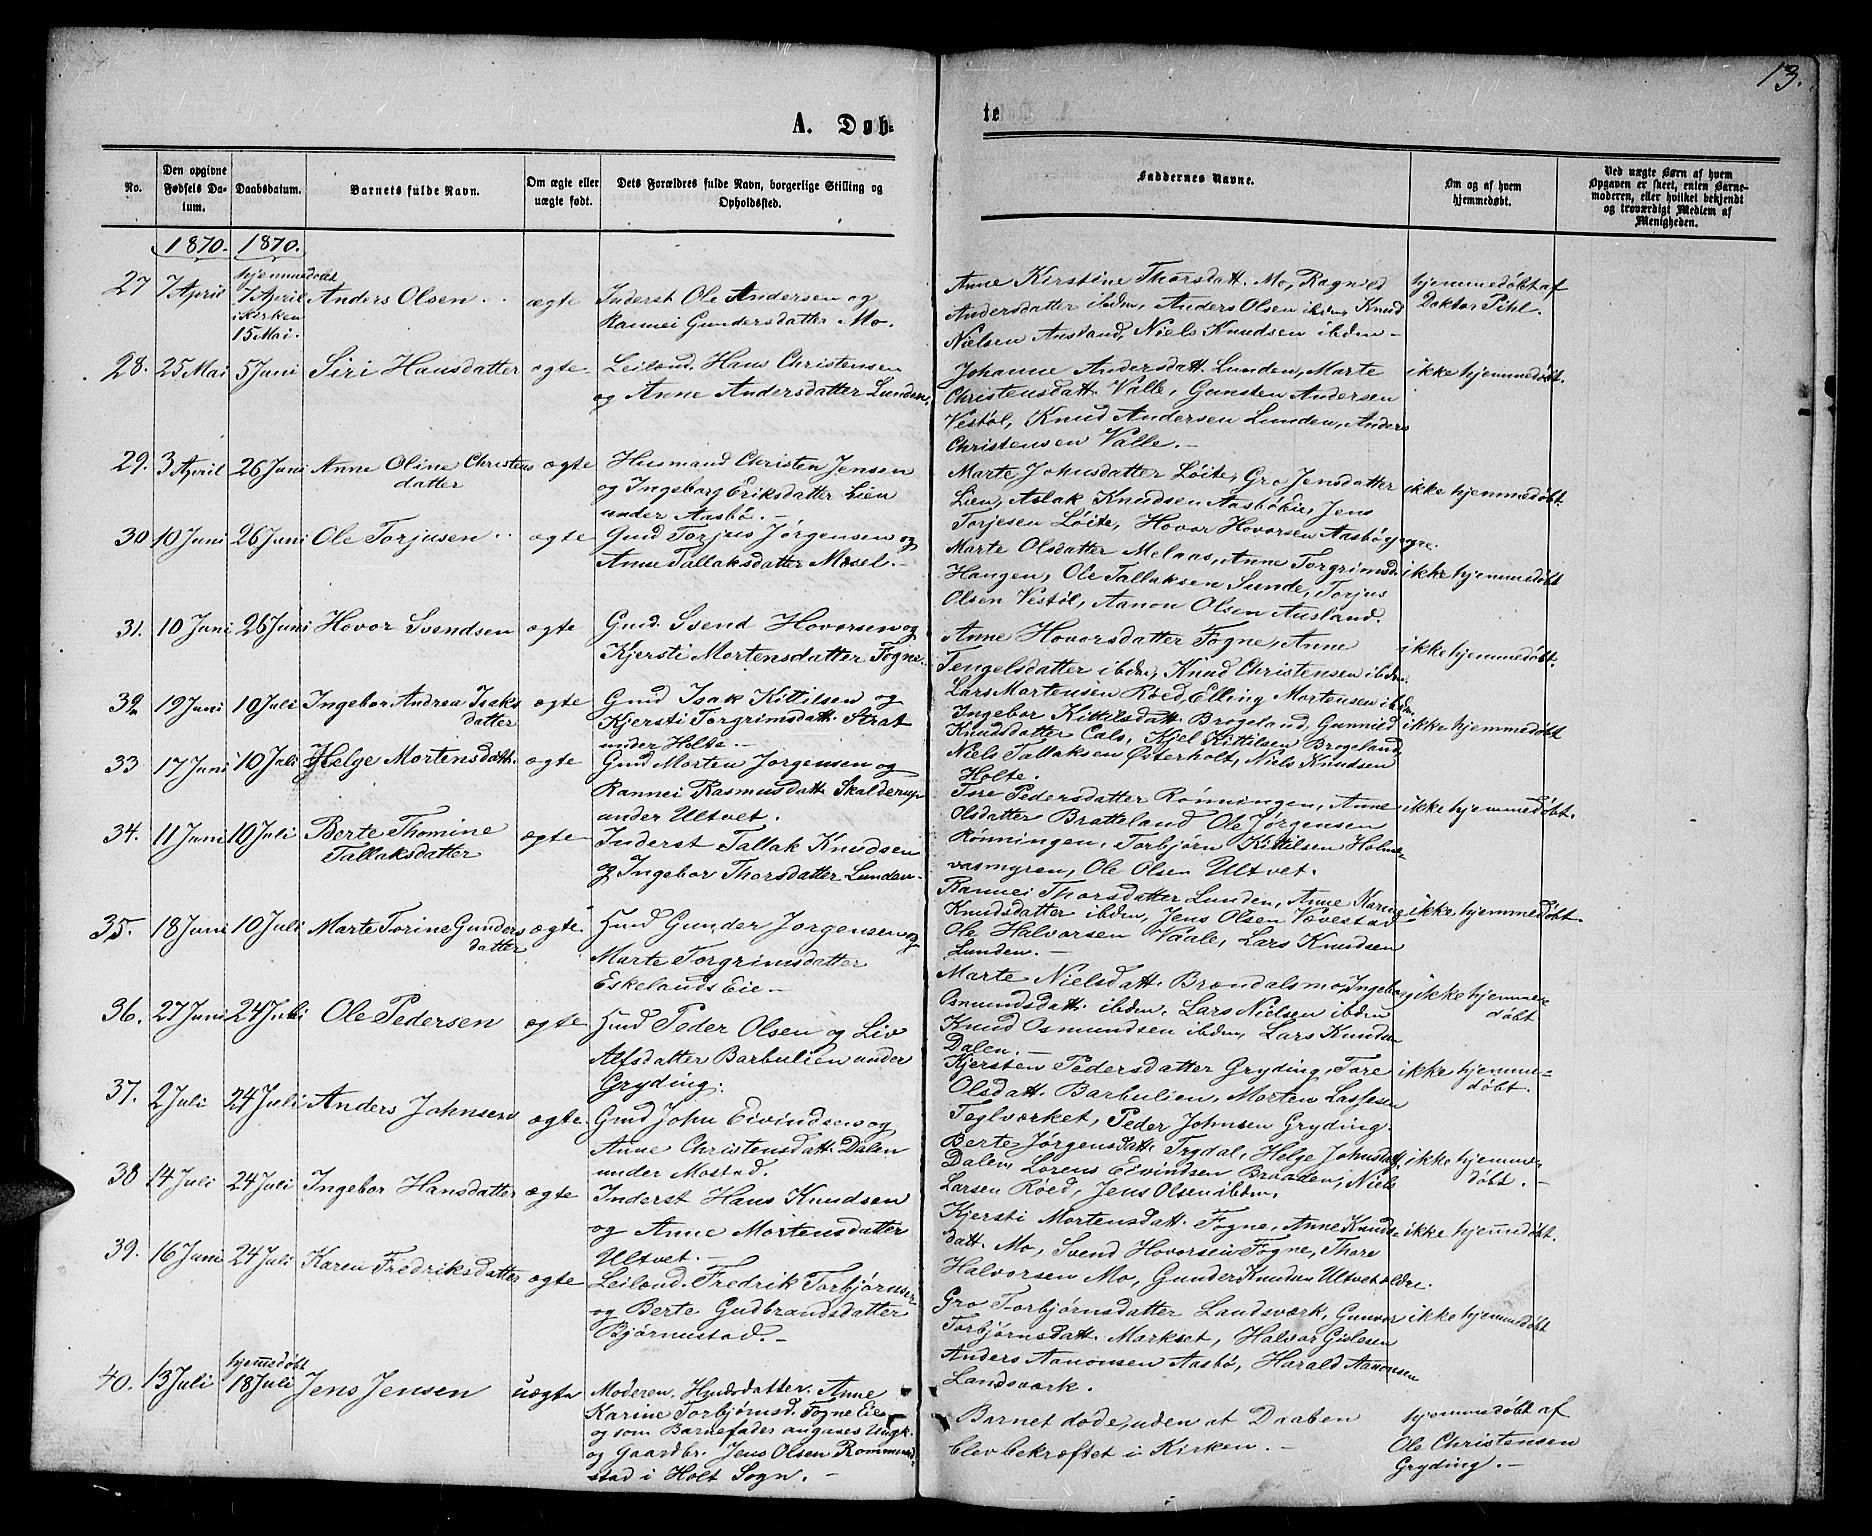 13.
A. Døb-
te
No.
Den opgivne Fødsels Da-
tum.
Daabsdatum.
Barnets fulde Navn.
Om ægte eller
uægte født.
Dets Forældres fulde Navn, borgerlige Stilling og
Opholdssted.
Faddernes Navne.
Om og af hvem
hjemmedøbt.
Ved uægte Børn af hvem
Opgaven er skeet, enten Barne-
moderen, eller hvilket bekjendt
og troværdigt Medlem af
Menigheden.
1870. 1870.
27 7 April
hjemmedøbt
7 April
i kirken
15 Mai.
Anders Olsen
ægte
Inderst Ole Andersen og
Rannei Gundersdatter Mo.
Anne Kirstine Thorsdatt. Mo, Ragnild
Andersdatter ibdm, Anders Olsen ibdm, Knud
Nielsen Ausland, Niels Knudsen ibdm
hjemmedøbt af
Doktor Pihl.
28. 25 Mai 5 Juni Siri Hansdatter ægte
Leilænd. Hans Christensen
og Anne Andersdatter Lunden.
Johanne Andersdatt. Lunden, Marte
Christensdatt. Valle, Gunsten Andersen
Vestøl, Knud Andersen Lunden, Anders
Christensen Valle.
ikke hjemmedøbt.
29. 3 April 26 Juni Anne Oline Christens
datter
ægte
Husmand Christen Jensen
og Ingeborg Eriksdatter Lien
under Aasbø.
Marte Johnsdatter Løite, Gro Jensdatter
Lien, Aslak Knudsen Aasbøeie, Jens
Torjesen Løite, Hovor Hovorsen Aasbø yngre.
ikke hjemmedøbt.
30 10 Juni 26 Juni Ole Torjusen ægte
Gmd Torjus Jørgensen og
Anne Tallaksdatter Mæsel.
Marte Olsdatter Melaas, Anne Torgrimsd.
Haugen, Ole Tallaksen Sunde, Torjus
Olsen Vestøl, Aanon Olsen Ausland.
ikke hjemmedøbt
31. 10 Juni 26 Juni Hovor Svendsen ægte
Gmd. Svend Hovorsen og
Kjersti Mortensdatter Fogne.
Anne Hovorsdatter Fogne, Anne
Tengelsdatter ibdm, Knud Christensen ibdm.
Lars Mortensen Røed, Elling Mortensen ibdm.
ikke hjemmedøbt.
32 19 Juni 10 Juli Ingebor Andrea Isaks
datter
ægte
Gmd Isak Kittilsen og
Kjersti Torgrimsdatt. Strat
under Holte.
Ingebor Kittilsdatt. Brogeland, Gunnild
Knudsdatter Cals, Kjel Kittilsen Brogeland,
Niels Tallaksen Østerholt, Niels Knudsen
Holte.
ikke hjemmedøbt
33 17 Juni 10 Juli Helge Mortensdatt. ægte
Gmd Morten Jørgensen og
Rannei Rasmusdatt. Skalderup
under Ultvet.
Tore Pedersdatter Rønningen, Anne
Olsdatter Bratteland Ole Jørgensen
Rønningen, Torbjørn Kittilsen Holme-
vasmyren, Ole Olsen Ultvet.
ikke hjemmedøbt.
34. 11 Juni 10 Juli Berte Thomine
Tallaksdatter
ægte
Inderst Tallak Knudsen
og Ingebor Thorsdatter Lunden.
Rannei Thorsdatter Lunden, Anne Karine
Knudsdatter ibdm, Jens Olsen Vævestad
Ole Halvorsen Vaale, Lars Knudsen
Lunden.
ikke hjemmedøbt.
35. 18 Juni 10 Juli Marte Torine Gunders
datter
ægte
Hmd Gunder Jørgensen og
Marte Torgrimsdatter
Eskelands Eie
Marte Nielsdatt. Brændalsmo, Ingeborg
Osmundsdatt. ibdm, Lars Nielsen ibdm
Knud Osmundsen ibdm, Lars Knudsen
Dalen.
ikke hjemme-
døbt
36. 27 Juni 24 Juli Ole Pedersen ægte
Hmd Peder Olsen og Liv
Alfsdatter Barbulien under
Gryding.
Kjersten Pedersdatter Gryding, Tore
Olsdatt. Barbulien, Morten Lassesen
Teglværket, Peder Johnsen Gryding.
ikke hjemme-
døbt.
37. 2 Juli 24 Juli Anders Johnsen ægte
Gmd John Eivindsen og
Anne Christensdatt. Dalen
under Mostad.
Berte Jørgensdatt. Trydal, Helge Johnsdatt.
Dalen, Lorens Eivindsen Braaden, Niels
Larsen Røed, Jens Olsen ibdm.
ikke hjemme-
døbt.
38 14 Juli 24 Juli Ingebor Hansdatter ægte
Inderst Hans Knudsen
og Anne Mortensdatter
Ultvet.
Kjersti Mortensdatt. Fogne, Anne Knuds-
datt. Mo, Svend Hovorsen Fogne, Thore
Halvorsen Mo, Gunder Knudsen Ultvet ældre.
ikke hjemedøbt.
39. 16 Juni 24 Juli Karen Fredriksdatter ægte
Leilænd. Fredrik Torbjørnsen
og Berte Gudbrandsdatter
Bjørnestad.
Gro Torbjørnsdatter Landsværk, Gunvor
Torbjørnsdatt. Markset, Halvor Gislesen
Anders Aanonsen Aasbø, Harald Aanonsen
Landsværk.
ikke hjemmedøbt
40. 13 Juli
hjemedøbt
18 Juli
Jens Jensen
uægte
Moderen, Hmdsdatter. Anne
Karine Torbjørnsd. Fogne Eie
og som Barnefader angives Ungk.
og Gaardbr. Jens Olsen Rommend
stad i Holt Sogn.
Barnet døde, uden at Daaben
blev bekræftet i Kirken.
hjemmedøbt af
Ole Christensen
Gryding.